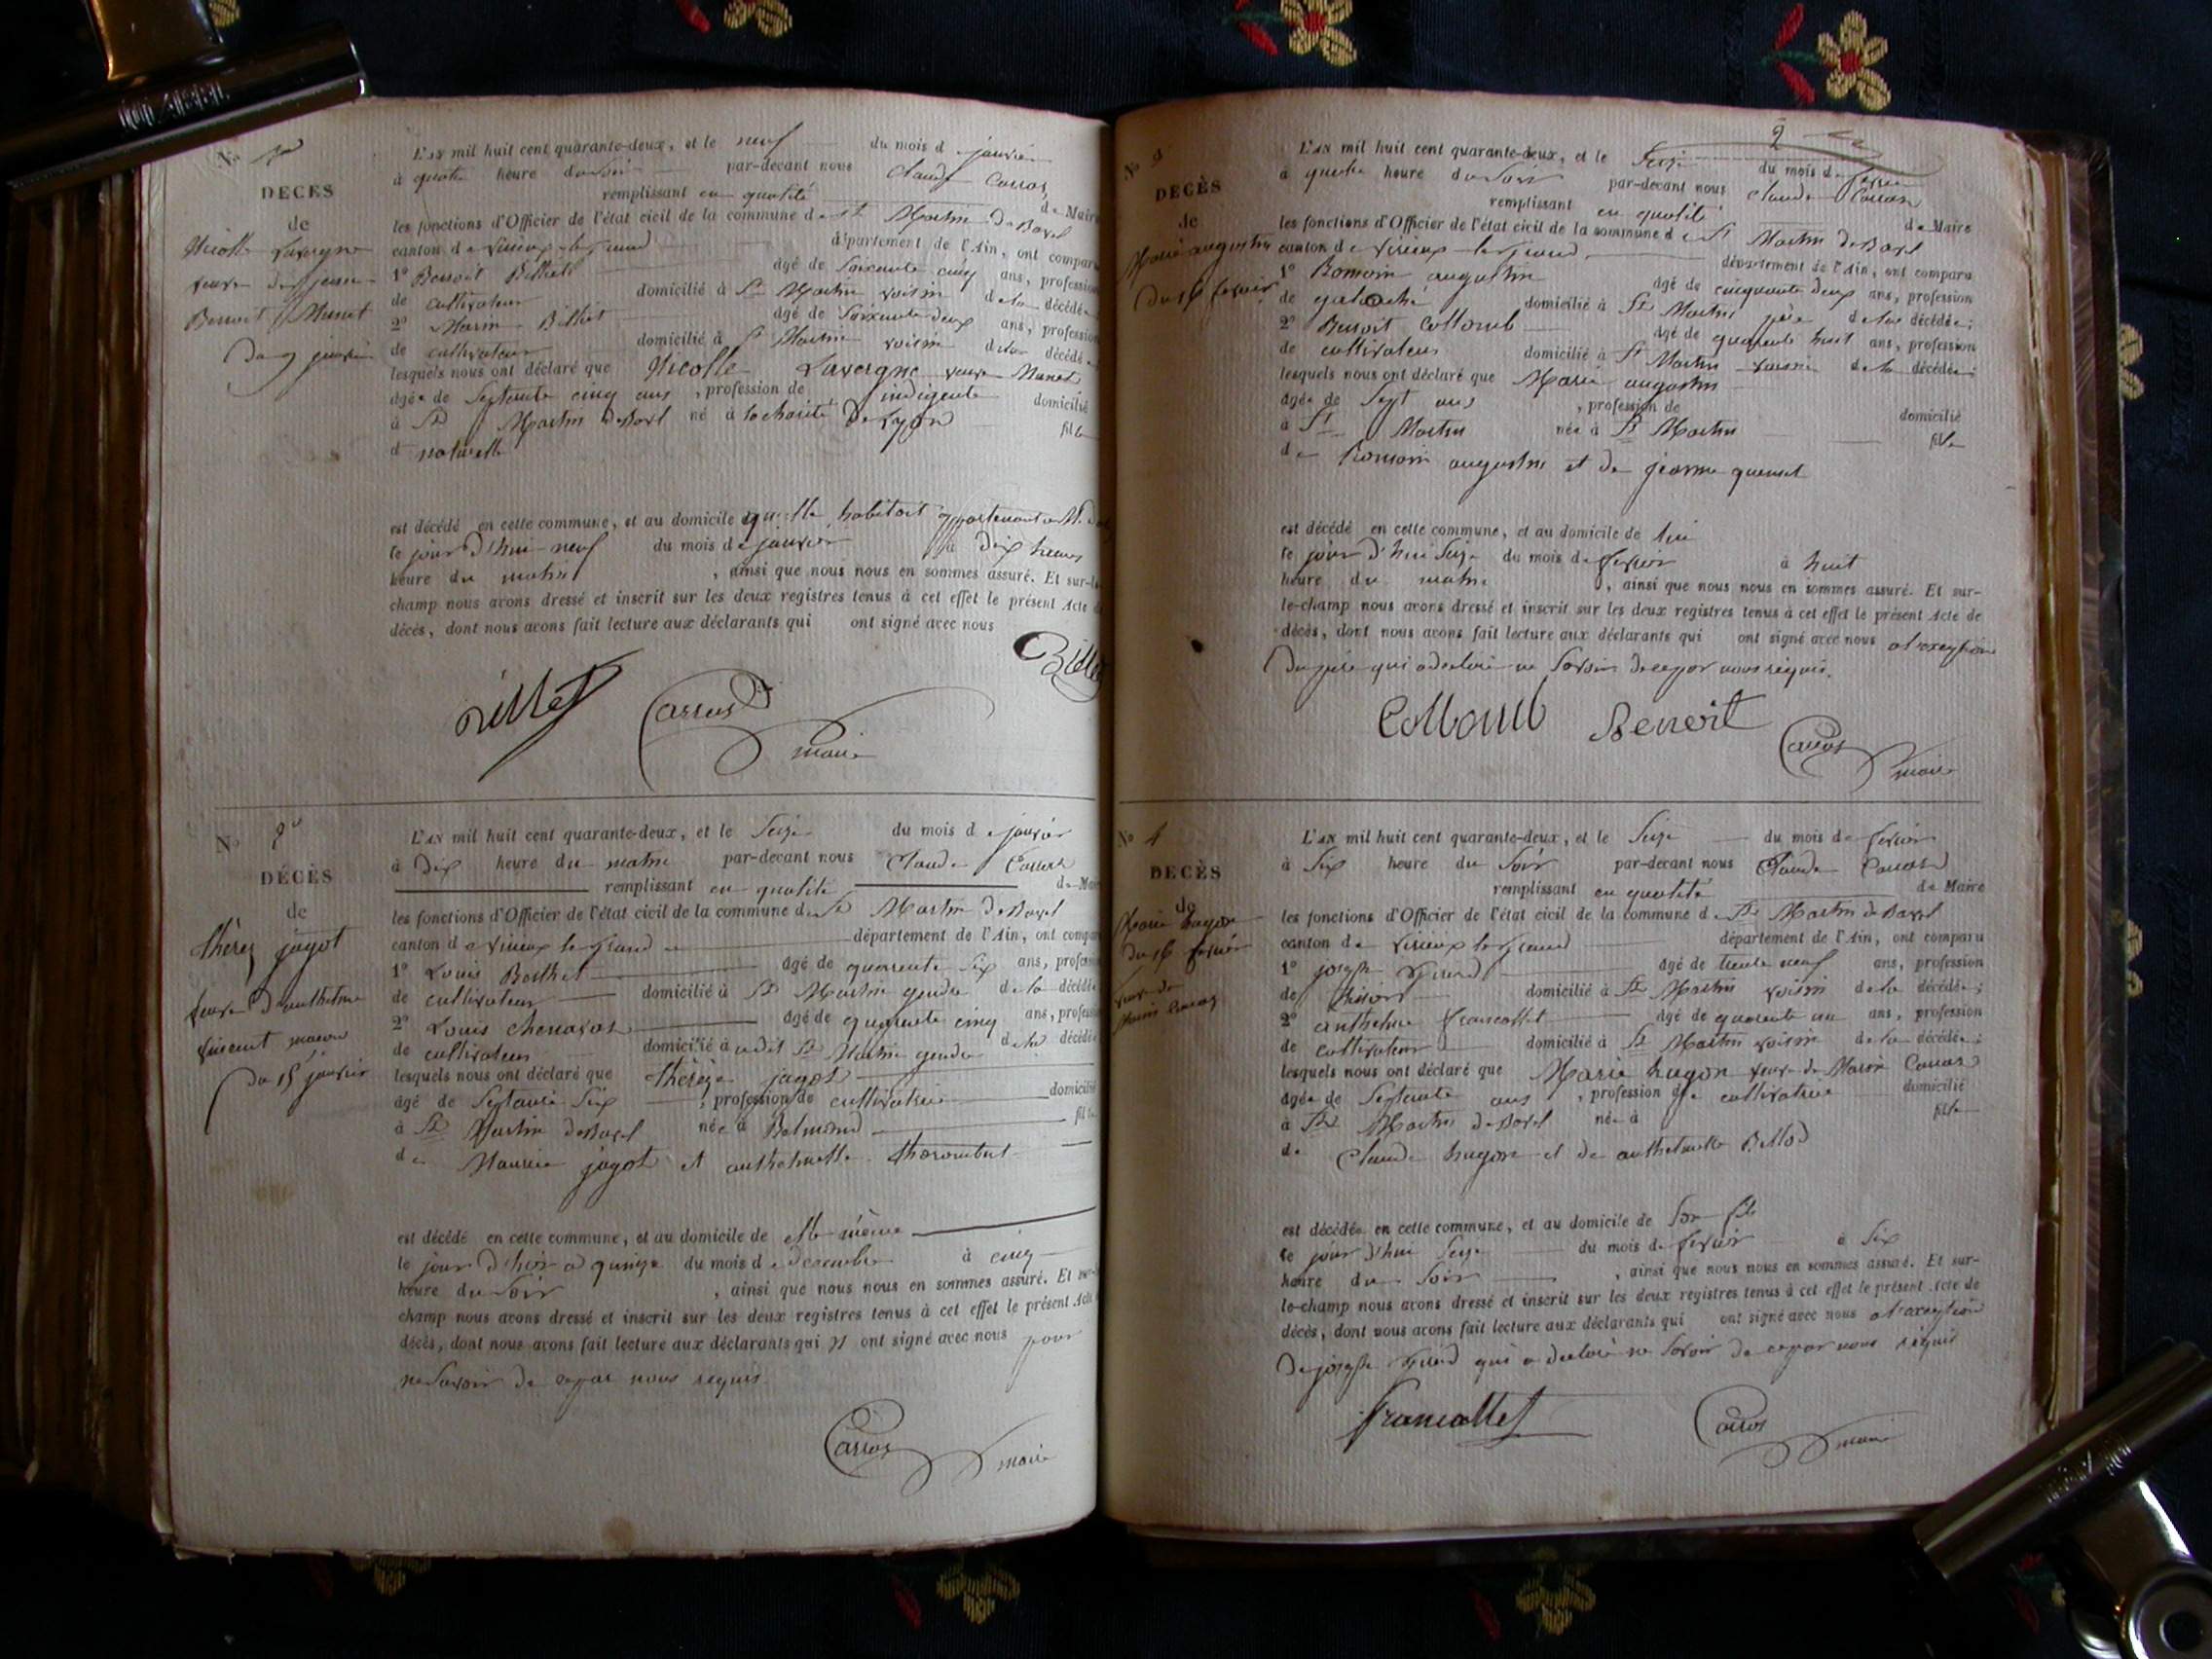 No 1
DECÈS
de
Nicolle Lavergne
veuve de jean
Benoit Munet
Du 9 janvier
L'AN mil huit cent quarante-deux, et le neuf du mois de janvier
à quatre heure du soir par-devant nous Claude Carras
remplissant en qualité de Maire
les fonctions d'Officier de l'état civil de la commune de St Martin de Bavel
canton de virieux le grand département de l'Ain, ont comparu
1° Benoit Billiet âgé de soixante cinq ans, profession
de cultivateur domicilié à St Martin voisin de la décédée
2° Marin Billiet âgé de soixante deux ans, profession
de cultivateur domicilié à St Martin voisin de la décédée
lesquels nous ont déclaré que Nicolle Lavergne veuve Munet
âgée de Septante cinq ans, profession de indigente domicilié
à St Martin de Bavel né à la charité de Lyon fille
d naturelle
est décédé en cette commune, et au domicile qu'elle habitait appartenant a M.
le jour d'hui neuf du mois de janvier à dix heures
heure du matin, ainsi que nous nous en sommes assuré. Et sur-le-
champ nous avons dressé et inscrit sur les deux registres tenus à cet effet le présent Acte de
décès, dont nous avons fait lecture aux déclarants qui ont signé avec nous
Billet
Billet Carras maire
No 2
DÉCÈS
de
thérèz jagot
veuve d'anthelme
vincent
du 15 janvier
L'AN mil huit cent quarante-deux, et le Seize du mois de janvier
à Dix heure du matin par-devant nous Claude Carras
remplissant en qualité de Maire
les fonctions d'Officier de l'état civil de la commune de St Martin de Bavel
canton de virieux le grand département de l'Ain, ont comparu
1° Louis Berthet âgé de quarente six ans, profession
de cultivateur domicilié à St Martin gendre de la décédée
2° Louis Chenavas âgé de quarente cinq ans, profession
de cultivateur domicilié à udit St Martin gendre de la décédée
lesquels nous ont déclaré que thérèze jagot
âgé de Septante Six, profession de cultivatrice domicilié
à St Martin de Bavel née à Belmond fille
de Maurice jagot et anthelmette
est décédé en cette commune, et au domicile de elle même
le jour d'hier a quinze du mois de decembre à cinq
heure du Soir, ainsi que nous nous en sommes assuré. Et sur-le-
champ nous avons dressé et inscrit sur les deux registres tenus à cet effet le présent Acte de
décès, dont nous avons fait lecture aux déclarants qui n ont signé avec nous pour
ne Savoir de ce par nous requis
Carras maire
2
No 3
DECÈS
de
Marie augustin
du 16 fevrier
L'AN mil huit cent quarante-deux, et le Seize du mois de fevrier
à quatre heure du Soir par-devant nous Claude Carras
remplissant en qualité de Maire
les fonctions d'Officier de l'état civil de la commune de St Martin de Bavel
canton de virieux le grand département de l'Ain, ont comparu
1° Romain augustin âgé de cinquante deux ans, profession
de domicilié à St Martin père de la décédée;
2° Benoit Collomb âgé de quarente huit ans, profession
de cultivateur domicilié à St Martin voisin de la décédée;
lesquels nous ont déclaré que Marie augustin
âgée de Sept ans, profession de domicilié
à St Martin née à St Martin fille
de Romain augustin et de jeanne
est décédé en cette commune, et au domicile de lui
le jour d'hui Seize du mois de fevrier à huit
heure du matin, ainsi que nous nous en sommes assuré. Et sur-
le-champ nous avons dressé et inscrit sur les deux registres tenus à cet effet le présent Acte de
décès, dont nous avons fait lecture aux déclarants qui ont signé avec nous a l'exception
du père qui a declaré ne Savoir de ce par nous requis.
Collomb Benoit Carras maire
No 4
DECÈS
de
Marie hugon
du 16 fevrier
veuve de
Marin Carras
L'AN mil huit cent quarante-deux, et le Seize du mois de fevrier
à Six heure du Soir par-devant nous Claude Carras
remplissant en qualité de Maire
les fonctions d'Officier de l'état civil de la commune de St Martin de Bavel
canton de virieux le grand département de l'Ain, ont comparu
1° joseph âgé de trente neuf ans, profession
de domicilié à St Martin voisin de la décédée;
2° anthelme francallet âgé de quarente un ans, profession
de cultivateur domicilié à St Martin voisin de la décédée;
lesquels nous ont déclaré que Marie hugon veuve de Marin Carras
âgée de Septante ans, profession de cultivatrice domicilié
à St Martin de Bavel née à fille
de Claude hugon et de anthelmette Billod
est décédée en cette commune, et au domicile de Son fils
le jour d'hui Seize du mois de fevrier à Six
heure du Soir, ainsi que nous nous en sommes assuré. Et sur-
le-champ nous avons dressé et inscrit sur les deux registres tenus à cet effet le présent Acte de
décès, dont nous avons fait lecture aux déclarants qui ont signé avec nous a l'exception
De joseph qui a declaré ne Savoir de ce par nous requis
francallet Carras maire